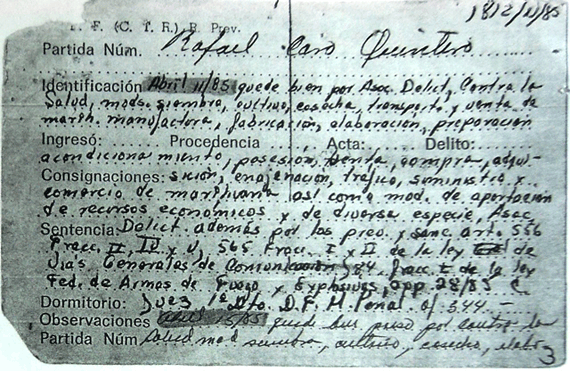 1812/11/85
F. (C. T. R.) R. Prev.
Partida Núm. Rafael Caro Quintero
Identificación Abril 11/85 quede bien por Asoc. Delict, Contra la
Salud, mods. siembra, cultivo, cosecha, transporte y venta de
marih. manufactora, fabricación, elaboración, preparación
Ingresó: Procedencia Acta: Delito:
acondicionamiento, posesión, venta, compra, adqui-
Consignaciones: sición, enajenación, tráfico, suministro y
comercio de marihuana así como mod. de aportación
de recursos económicos y de diversa especie, Asoc.
Sentencia Delict. además por los prev. y sanc. arts. 556
Fracc. II, IV y V, 565 Fracc. I y II de la ley de
Vías Generales de Comunicación, 84 Fracc. I de la ley
Fed. de Armas de Fuego y Explosivos, app 28/85 c
Dormitorio: Juez 1º Dto. D.F. M. Penal. of 344 -
Observaciones abril 15/85 quede bien preso por contra la
Partida Núm salud mod siembra, cultivo, cosecha, elab
3